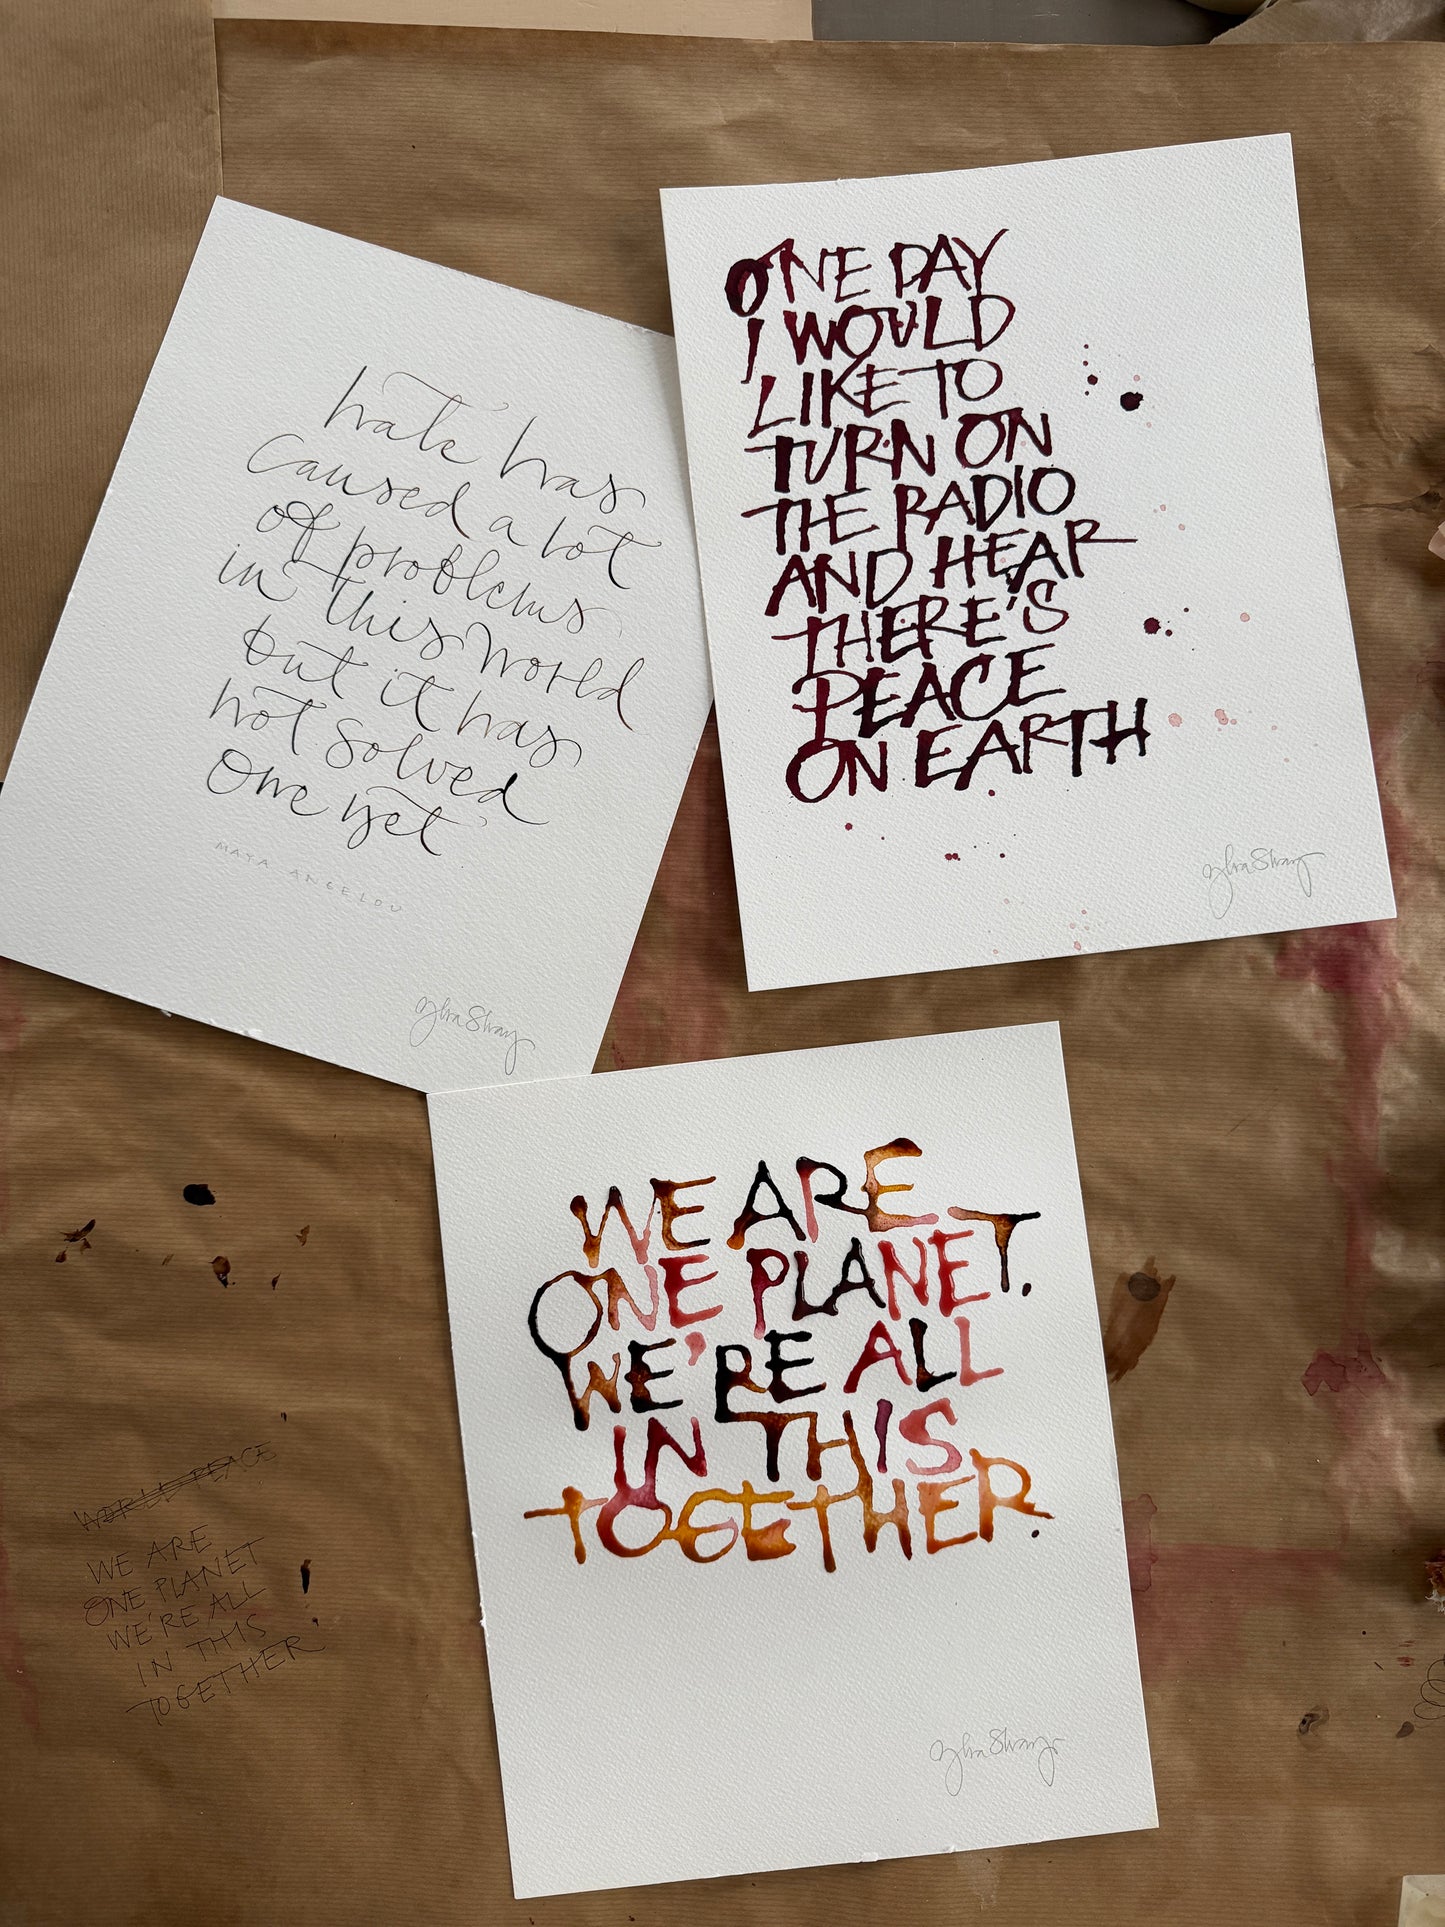 hate has
caused a lot
of problems
in this world
but it has
not solved
one yet
MAYA ANGELOU
Ylva Skarp
ONE DAY
I WOULD
LIKE TO
TURN ON
THE RADIO
AND HEAR
THERE'S
PEACE
ON EARTH
Ylva Skarp
WE ARE
ONE PLANET.
WE'RE ALL
IN THIS
TOGETHER.
Ylva Skarp
WORLD PEACE
WE ARE
ONE PLANET
WE'RE ALL
IN THIS
TOGETHER